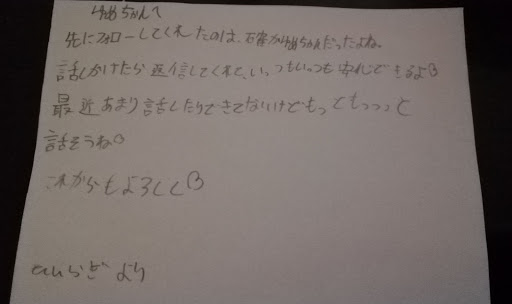 ゆめちゃんへ
先にフォローしてくれたのは、確かゆめちゃんだったよね。
話しかけたら返信してくれて、いっつもいっつも安心できるよ♡
最近あまり話したりできてないけどもってもっっっと
話そうね♡
これからもよろしく♡
ひいらぎより